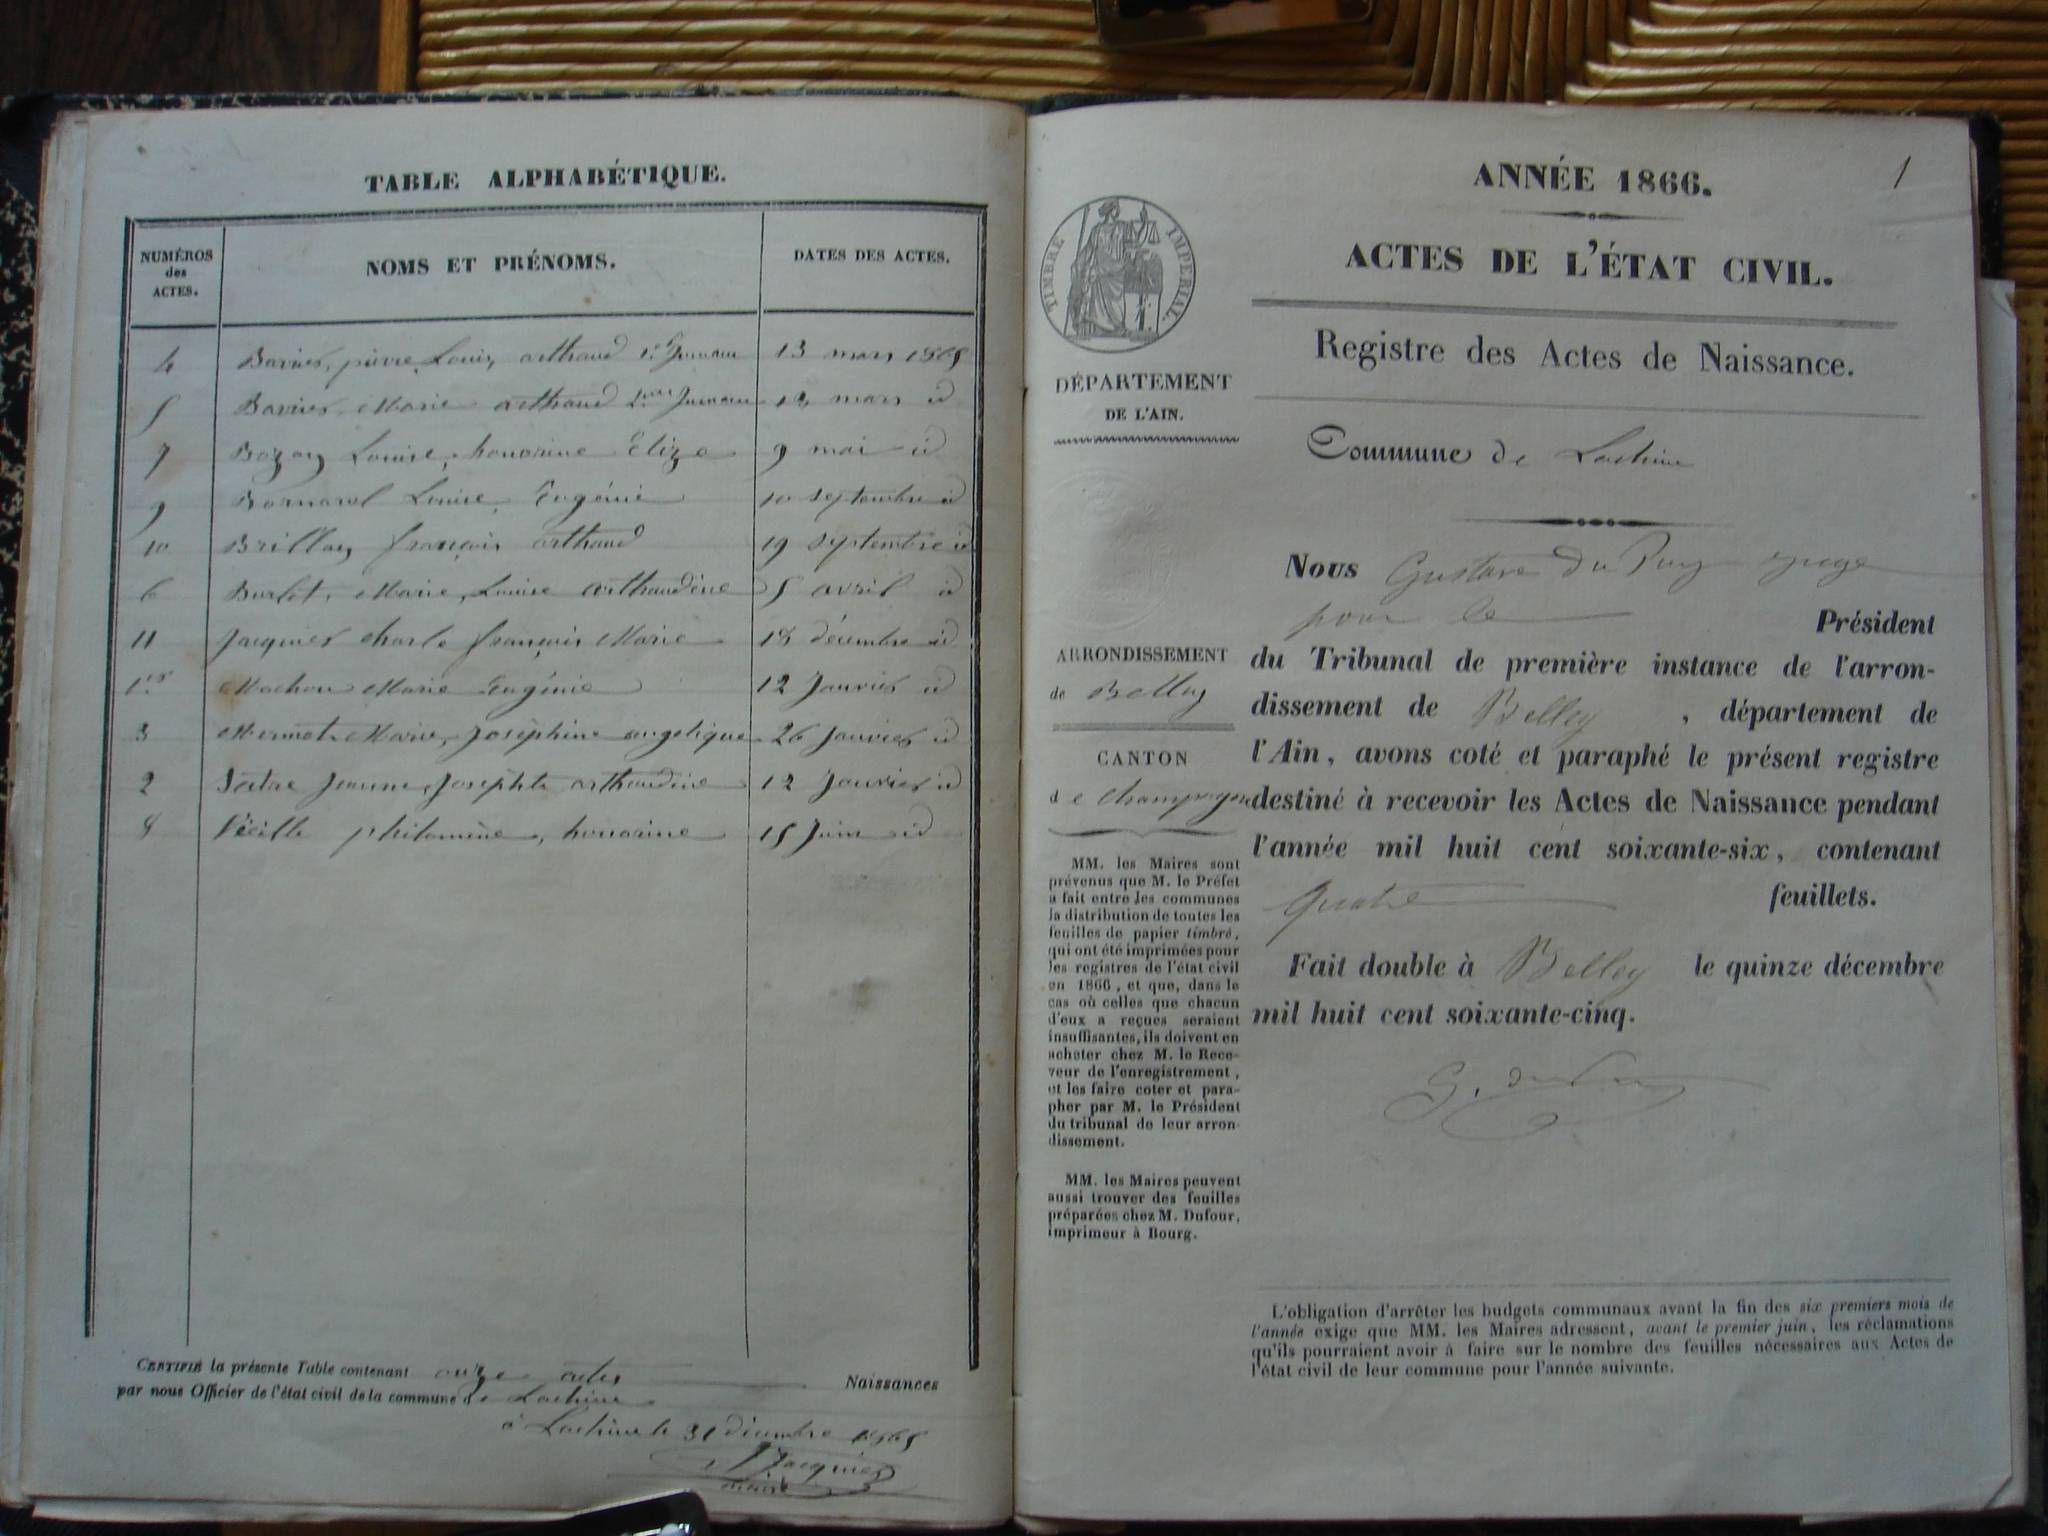 TABLE ALPHABÉTIQUE.
NUMÉROS des ACTES.
NOMS ET PRÉNOMS.
DATES DES ACTES.
4 pierre Louis arthaud 1er Jumeau 13 mars 1865
5 Marie arthaud Jumeau mars id
7 Bozon Louise, honorine Elize 9 mai id
9 Bornarel Louise, Eugénie 10 septembre id
10 Brillat françois arthaud 19 septembre id
6 Burlet, Marie, Louise arthaudine 5 avril id
11 Jacquier charle françois Marie 18 décembre id
1er Machon Marie Eugénie 12 Janvier id
3 Mermet Marie, Joséphine angelique 26 Janvier id
2 Jeanne, Josephte arthaudine 12 Janvier id
8 Vieille philomène, honorine 15 Juin id
CERTIFIÉ la présente Table contenant onze actes Naissances
par nous Officier de l'état civil de la commune de Lochieu
à Lochieu le 31 décembre 1865
Jacquier
maire
1
ANNÉE 1866.
ACTES DE L'ÉTAT CIVIL.
Registre des Actes de Naissance.
TIMBRE IMPERIAL.
DÉPARTEMENT
DE L'AIN.
Commune de Lochieu
Nous Gustave du Puy juge
pour le Président
du Tribunal de première instance de l'arron-
dissement de Belley, département de
l'Ain, avons coté et paraphé le présent registre
destiné à recevoir les Actes de Naissance pendant
l'année mil huit cent soixante-six, contenant
quatre feuillets.
Fait double à Belley le quinze décembre
mil huit cent soixante-cinq.
G. du Puy
ARRONDISSEMENT
de Belley
CANTON
de Champagne
MM. les Maires sont
prévenus que M. le Préfet
a fait entre les communes
la distribution de toutes les
feuilles de papier timbré,
qui ont été imprimées pour
les registres de l'état civil
en 1866, et que, dans le
cas où celles que chacun
d'eux a reçues seraient
insuffisantes, ils doivent en
acheter chez M. le Rece-
veur de l'enregistrement,
et les faire coter et para-
pher par M. le Président
du tribunal de leur arron-
dissement.
MM. les Maires peuvent
aussi trouver des feuilles
préparées chez M. Dufour,
imprimeur à Bourg.
L'obligation d'arrêter les budgets communaux avant la fin des six premiers mois de
l'année exige que MM. les Maires adressent, avant le premier juin, les réclamations
qu'ils pourraient avoir à faire sur le nombre des feuilles nécessaires aux Actes de
l'état civil de leur commune pour l'année suivante.